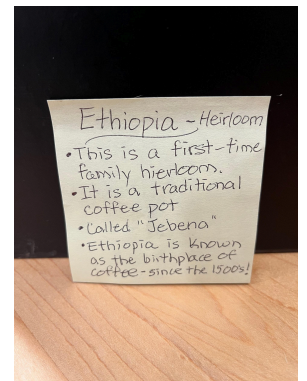 Ethiopia - Heirloom
• This is a first-time
family hierloom.
• It is a traditional
coffee pot
• Called "Jebena"
• Ethiopia is known
as the birthplace of
coffee - since the 1500's!